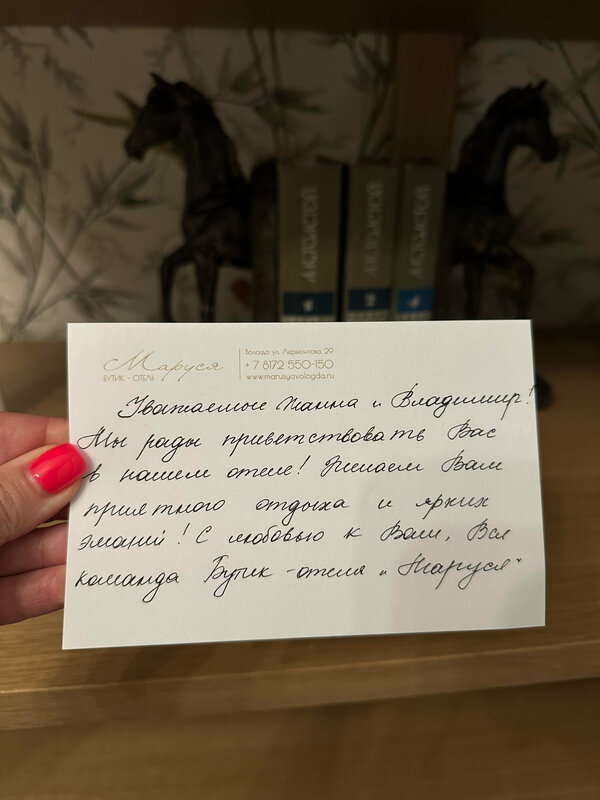 А.К.ТОЛСТОЙ
А.К.ТОЛСТОЙ
А.К.ТОЛСТОЙ
1
2
4
Маруся
БУТИК - ОТЕЛЬ
Вологда ул. Лермонтова, 29
+ 7 8172 550-150
www.marusyavologda.ru
Уважаемые Жанна и Владимир!
Мы рады приветствовать Вас
в нашем отеле! Желаем Вам
приятного отдыха и ярких
эмоций! С любовью к Вам, Вся
команда Бутик-отеля „Маруся"